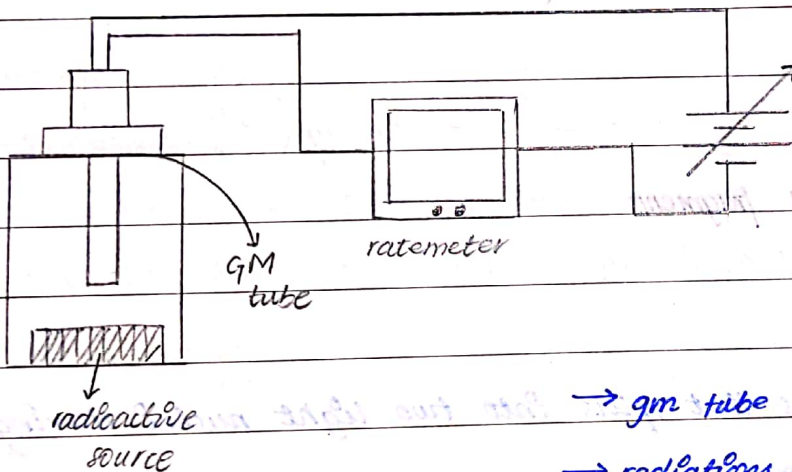 GM
tube
ratemeter
radioactive
source
→ gm tube
→ radiations